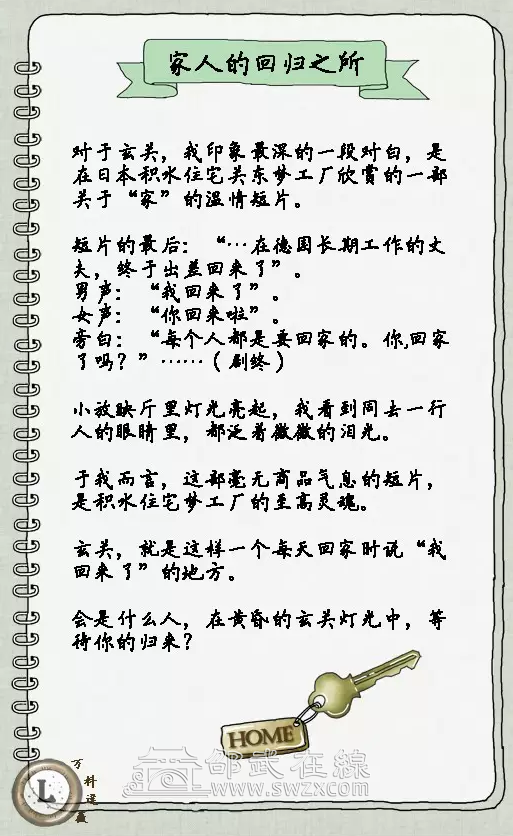 家人的回归之所
对于玄关，我印象最深的一段对白，是
在日本积水住宅关东梦工厂欣赏的一部
关于“家”的温情短片。
短片的最后：“…在德国长期工作的丈
夫，终于出差回来了”。
男声：“我回来了”。
女声：“你回来啦”。
旁白：“每个人都是要回家的。你,回家
了吗？”……（剧终）
小放映厅里灯光亮起，我看到同去一行
人的眼睛里，都泛着微微的泪光。
于我而言，这部毫无商品气息的短片，
是积水住宅梦工厂的至高灵魂。
玄关，就是这样一个每天回家时说“我
回来了”的地方。
会是什么人，在黄昏的玄关灯光中，等
待你的归来？
HOME
L
万科
邵武在線
www.swzx.com